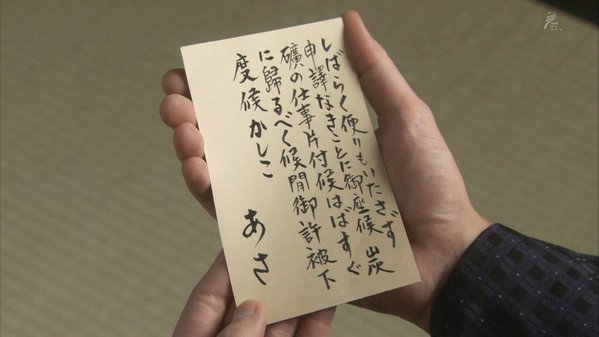 しばらく便りもいたさず
申譯なきことに御座候 炭
礦の仕事片付候はばすぐ
に歸るべく候間御許被下
度候かしこ
あさ